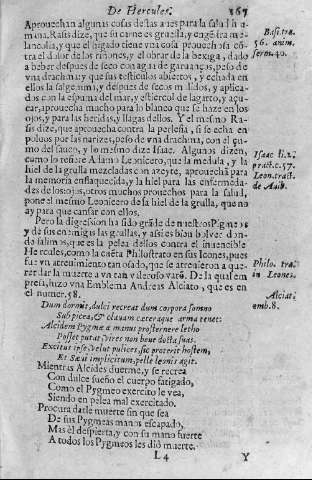 De Hercules.
167
Aprouechan algunas cosas destas aues para la salud hu-
mana. Rasis dize, que su carne es gruessa, y engendra me-
lancolia, y que el higado tiene vna cosa prouechosa cō-
tra el dolor de los riñones, y el obrar de la bexiga, dado
a beber despues de seco con agua de garuanços, peso de
vna drachma: y que sus testiculos abiertos, y echada en
ellos la sal gemma, y despues de secos molidos, y aplica-
dos con la espuma del mar, y estiercol de lagarto, y açu-
car, aprouecha mucho para lo blanco que se haze en los
ojos, y para las heridas, y llagas dellos. Y el mesmo Ra-
sis dize, que aprouecha contra la perlesia, si se echa en
poluos por las narizes, peso de vna drachma, con el çu-
mo del sauco, y lo mesmo dize Isaac. Algunos dizen,
como lo refiere Adamo Leonicero, que la medula, y la
hiel de la grulla mezcladas con azeyte, aprouecha para
la memoria enflaquecida, y la hiel para las enfermeda-
des de los ojos, otros muchos prouechos para la salud,
pone el mesmo Leonicero de la hiel de la grulla, que no
ay para que cansar con ellos.
Pero la digression ha sido grāde de nuestros Pigmeos
y de sus enemigas las grullas, y assi es biē boluer don-
de salimos, que es la pelea dellos contra el inuencible
Hercules, como la cuēta Philostrato en sus Icones, pues
fue vn atreuimiento tan osado, que se atreuieron a que-
rer dar la muerte a vn tan valeroso varō. De la qual em
presa, hizo vna Emblema Andreas Alciato, que es en
el numer. 58.
Dum dormit, dulci recreat dum corpora somno
Sub picea, & clauam cæteraque arma tenet:
Alcidem Pygmæa manus prosternere letho
Posse putat, vires non bene docta suas.
Excitus ipse, velut pulices, sic proterit hostem,
Et sæui implicitum, pelle leonis agit.
Mientras Alcides duerme, y se recrea
Con dulce sueño el cuerpo fatigado,
Como el Pygmeo exercito le vea,
Siendo en pelea mal exercitado.
Procura darle muerte sin que sea
De sus Pygmeas manos escapado,
Mas el despierta, y con su mano fuerte
A todos los Pygmeos les diò muerte.
L 4
Y
Basi. tra.
56. anim.
serm. 40.
Isaac li. 2.
pract. c. 57.
Leon. tract.
de Auib.
Philo. tra.
in Icones.
Alciat.
emb. 8.